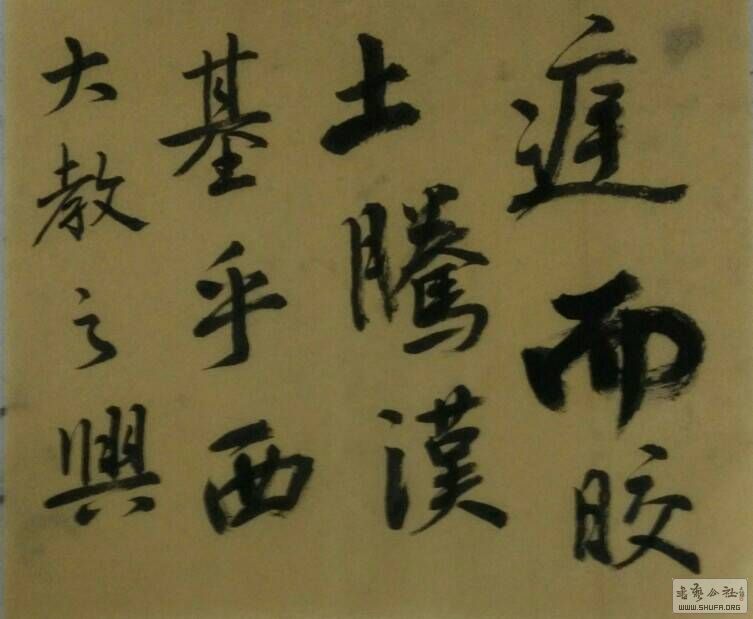 大教之興
基乎西
土騰漢
庭而皎
書藝公社
WWW.SHUFA.ORG